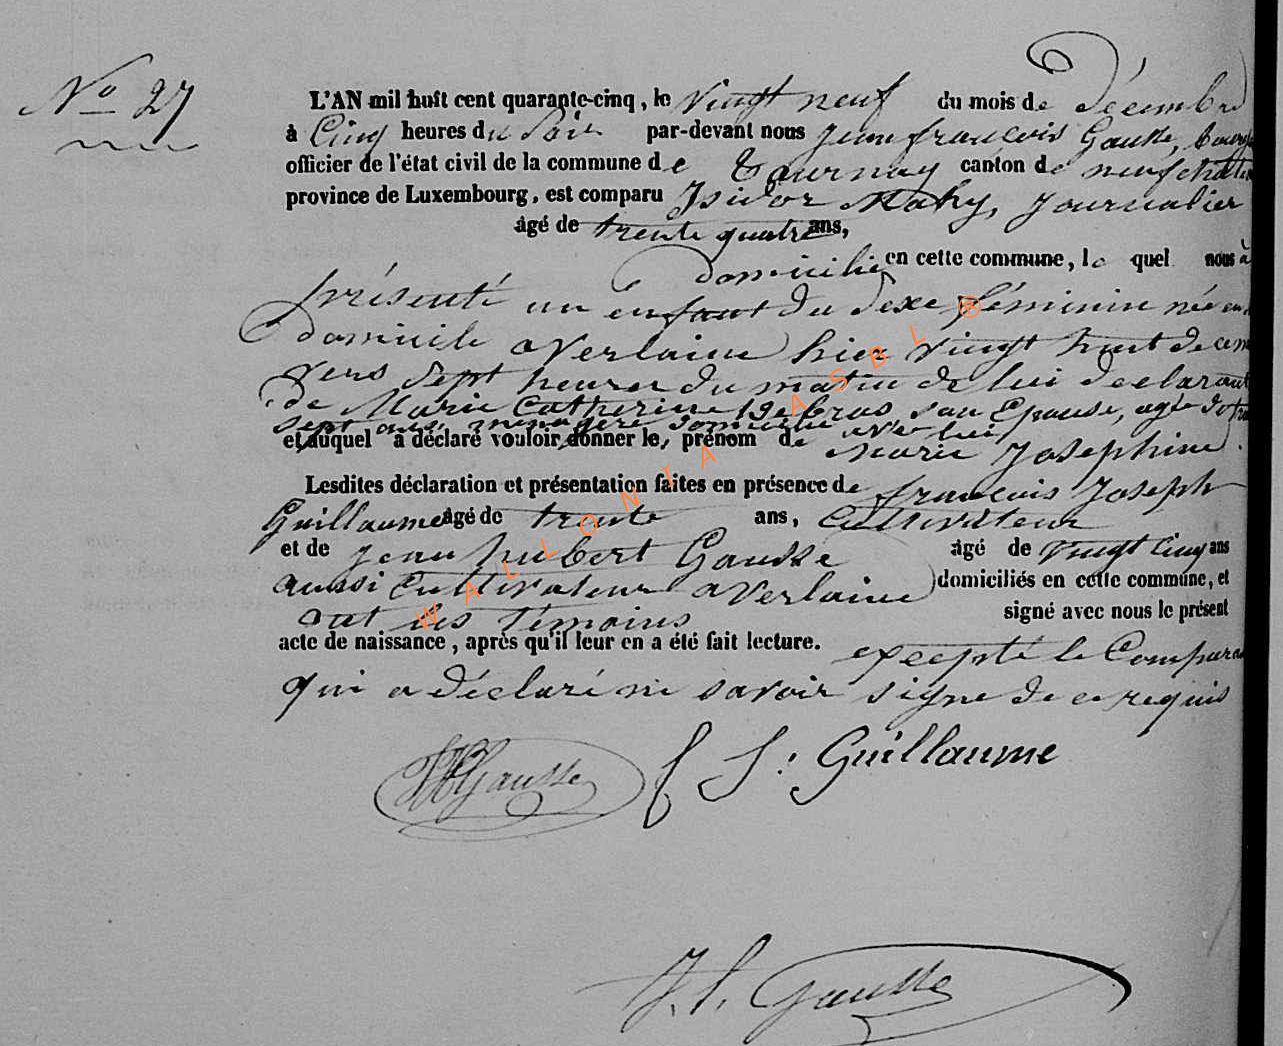 No 27
L'AN mil huit cent quarante-cinq, le vingt neuf du mois de Décembre
à Cinq heures du Soir par-devant nous jean françois Gausse,
officier de l'état civil de la commune de Tournay canton de neufchateau
province de Luxembourg, est comparu Isidor Mahy, journalier
âgé de trente quatre ans,
domicilié en cette commune, le quel nous à
présenté un enfant du Sexe féminin née en
domicile a Verlaine hier vingt huit de ce m
vers Sept heures du matin de lui declarant
de Marie Catherine Debras, son Epouse, agée de
Sept ans, menagère domicilié avec lui,
et auquel a déclaré vouloir donner le, prénom de Marie josephine.
Lesdites déclaration et présentation faites en présence de françois joseph
Guillaume âgé de trente ans, Cultivateur
et de jean hubert Gausse âgé de vingt Cinq ans
aussi Cultivateur a Verlaine domiciliés en cette commune, et
ont les Témoins signé avec nous le présent
acte de naissance, après qu'il leur en a été fait lecture. excepté le Compara
qui a déclaré ne savoir signe de ce requis
JH Gausse f J: Guillaume
J. f. Gausse
WALLONIA ASBL ®